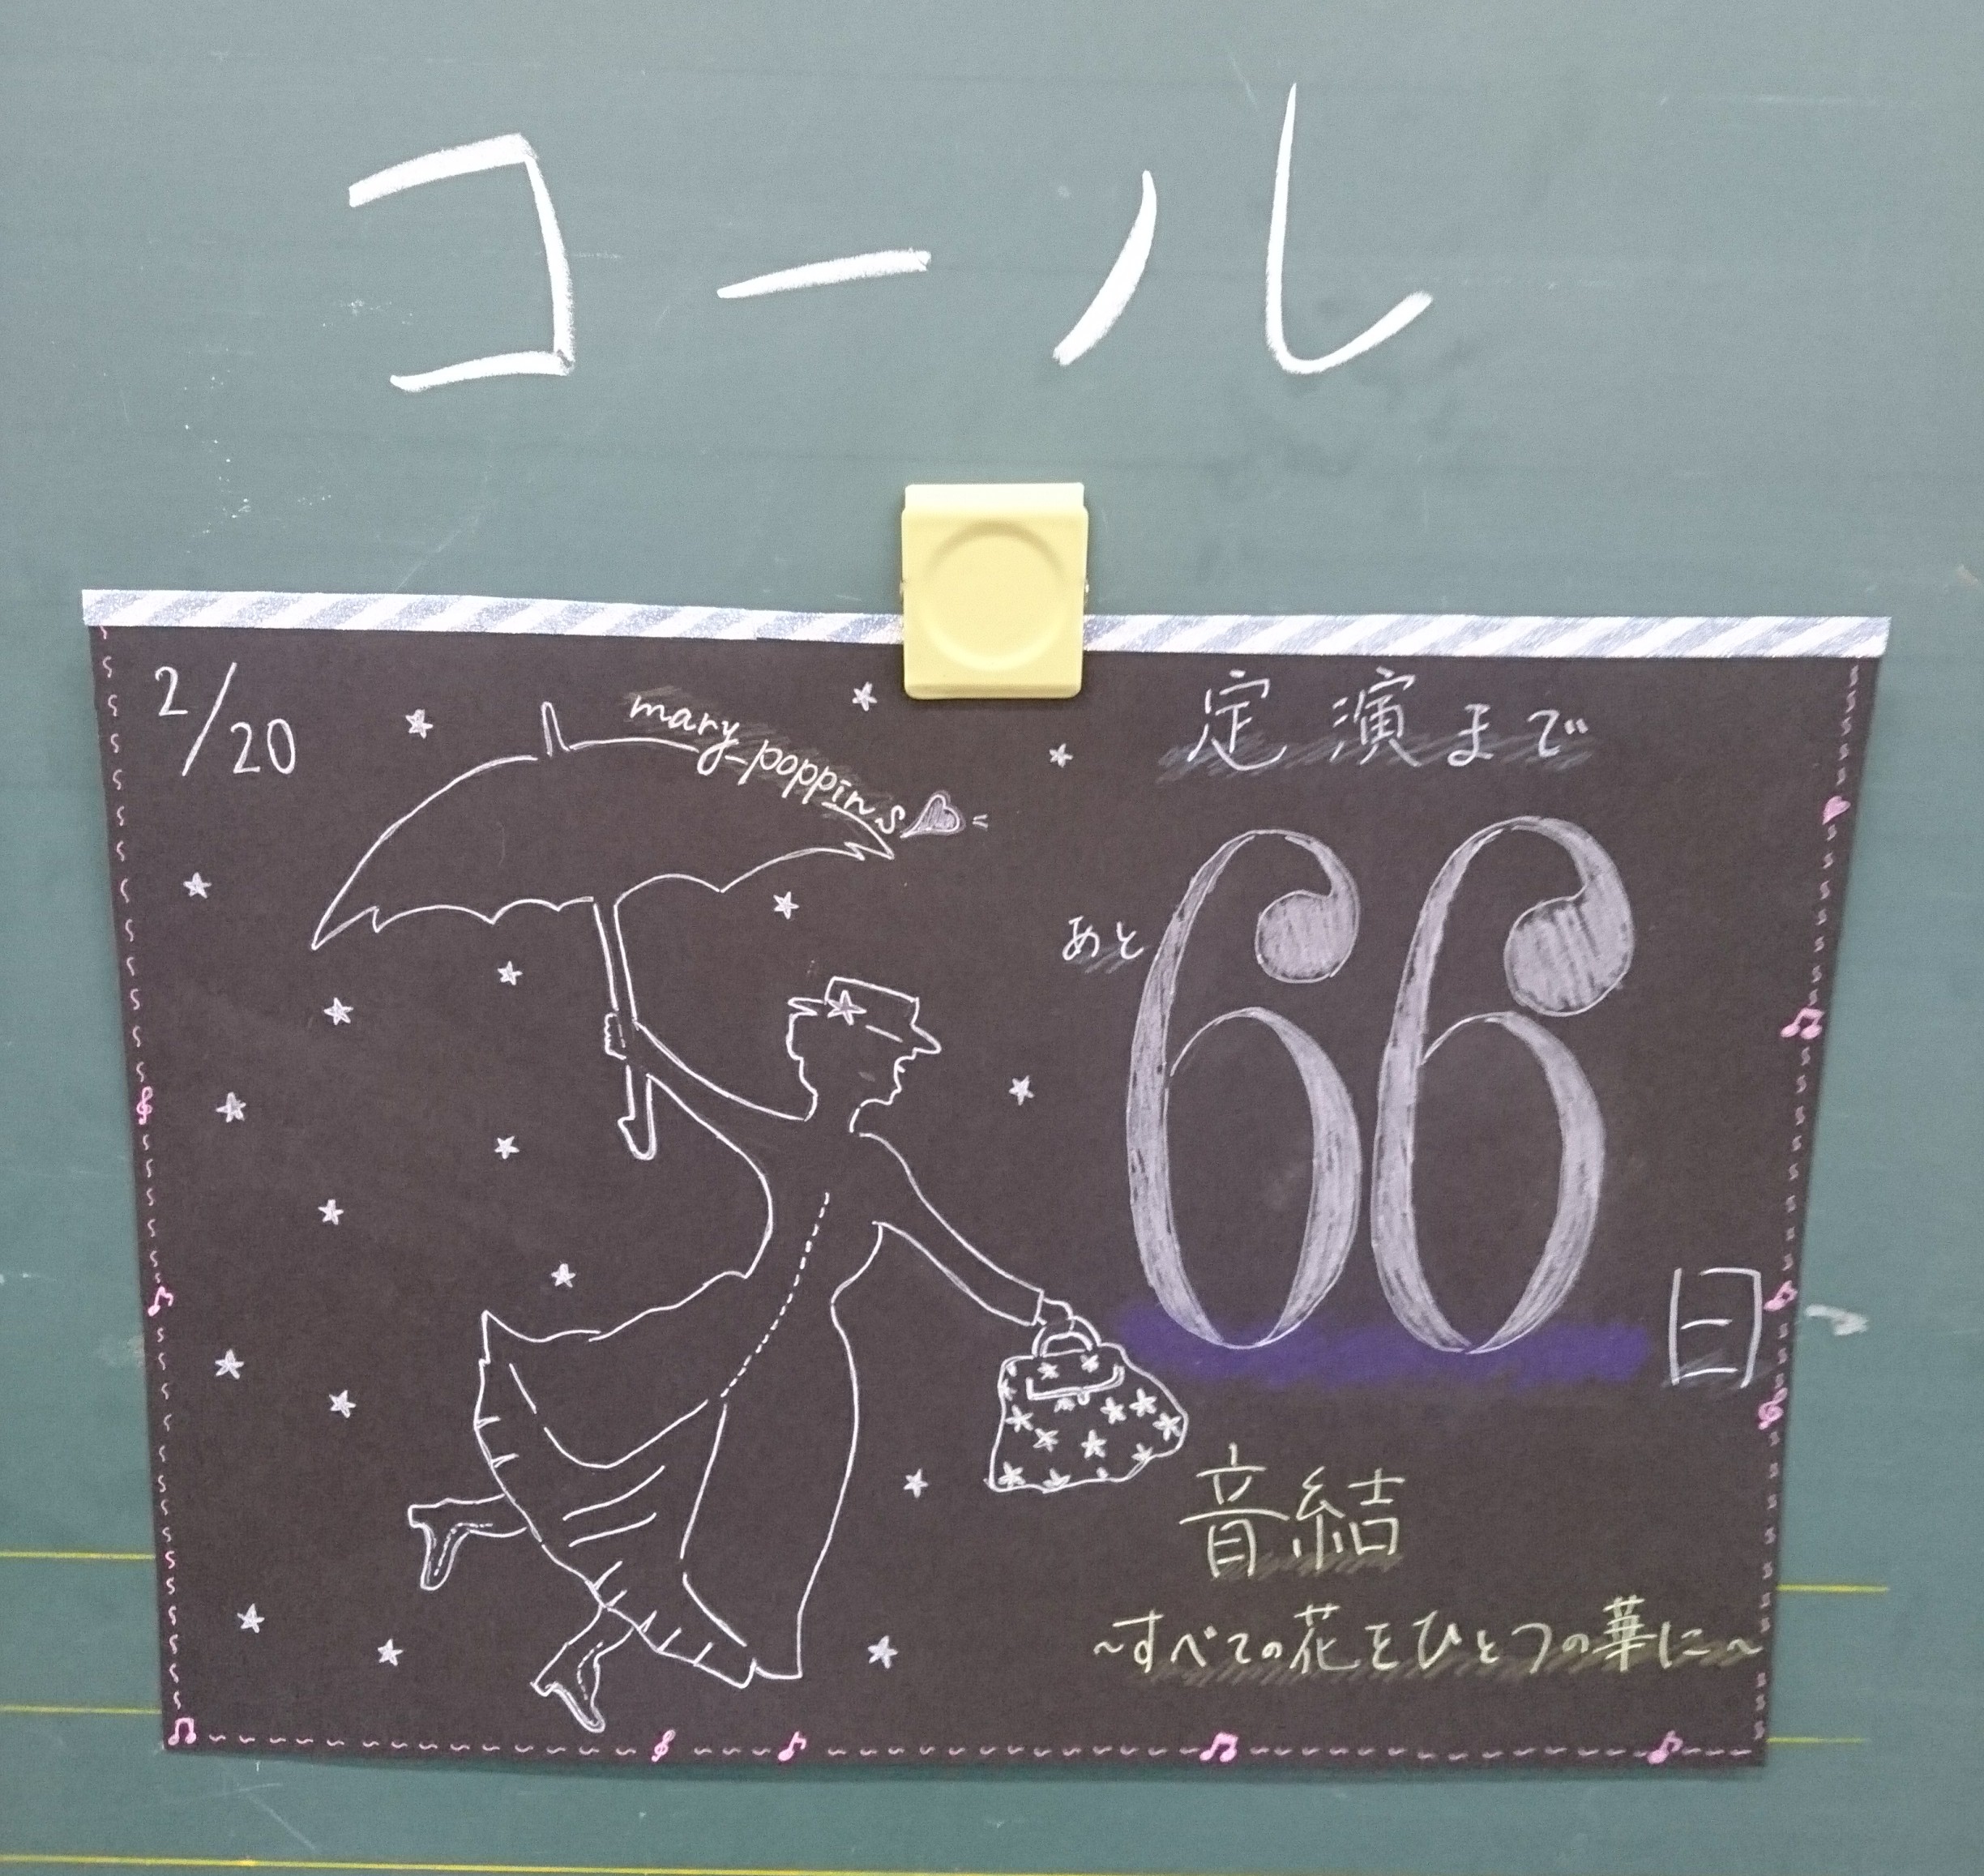 コール
2/20
mary poppins
定演まで
あと
66
日
音結
～すべての花をひとつの華に～